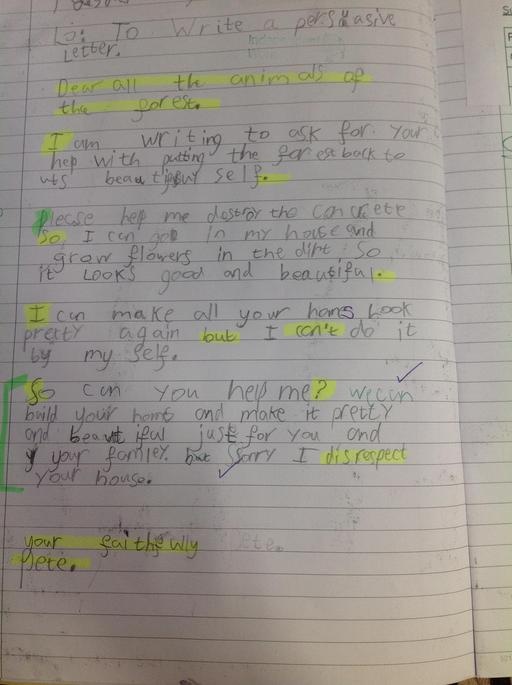 Lo: To Write a persuasive
Letter.
Dear all the animals of
the forest.
I am writing to ask for your
hep with putting the forest back to
uts beautifuy self.
Please hep me destroy the concrete
So I can go in my house and
grow flowers in the dirt So
it Looks good and beautiful.
I can make all your homs Look
pretty again but I can't do it
by my self.
So can you help me? We can
build your home and make it pretty
and beautiful just for you and
your famley. but Sorry I disrespect
your house.
your faithewly
Pete.